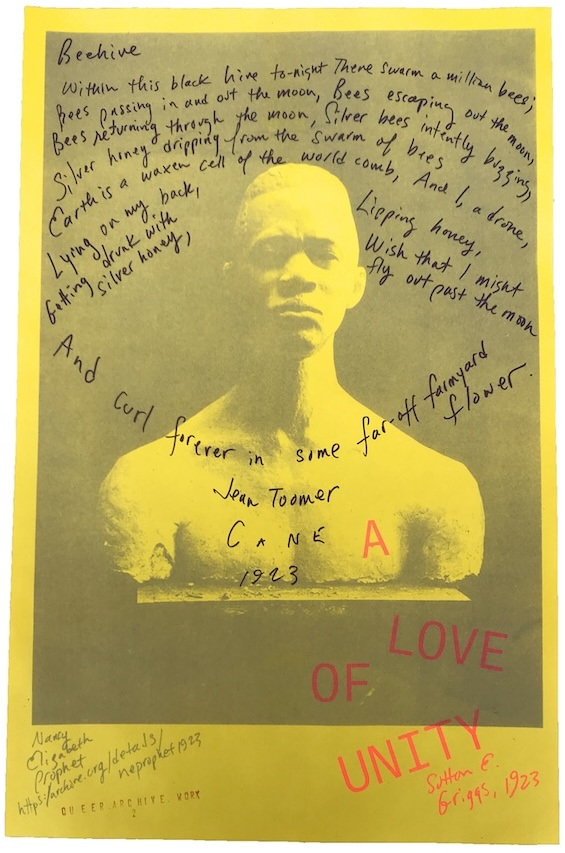 Beehive
Within this black hive to-night There swarm a million bees;
Bees passing in and out the moon, Bees escaping out the moon,
Bees returning through the moon, Silver bees intently buzzing,
Silver honey dripping from the swarm of bees
Earth is a waxen cell of the world comb, And I, a drone,
Lying on my back,
Lipping honey,
Getting drunk with
silver honey,
Wish that I might
fly out past the moon
And curl forever in some far-off farmyard
flower.
Jean Toomer
CANE
1923
A
LOVE
OF
UNITY
Sutton E.
Griggs, 1923
Nancy
Elizabeth
Prophet
https://archive.org/details/
neprophet1923
QUEER.ARCHIVE.WORK
2